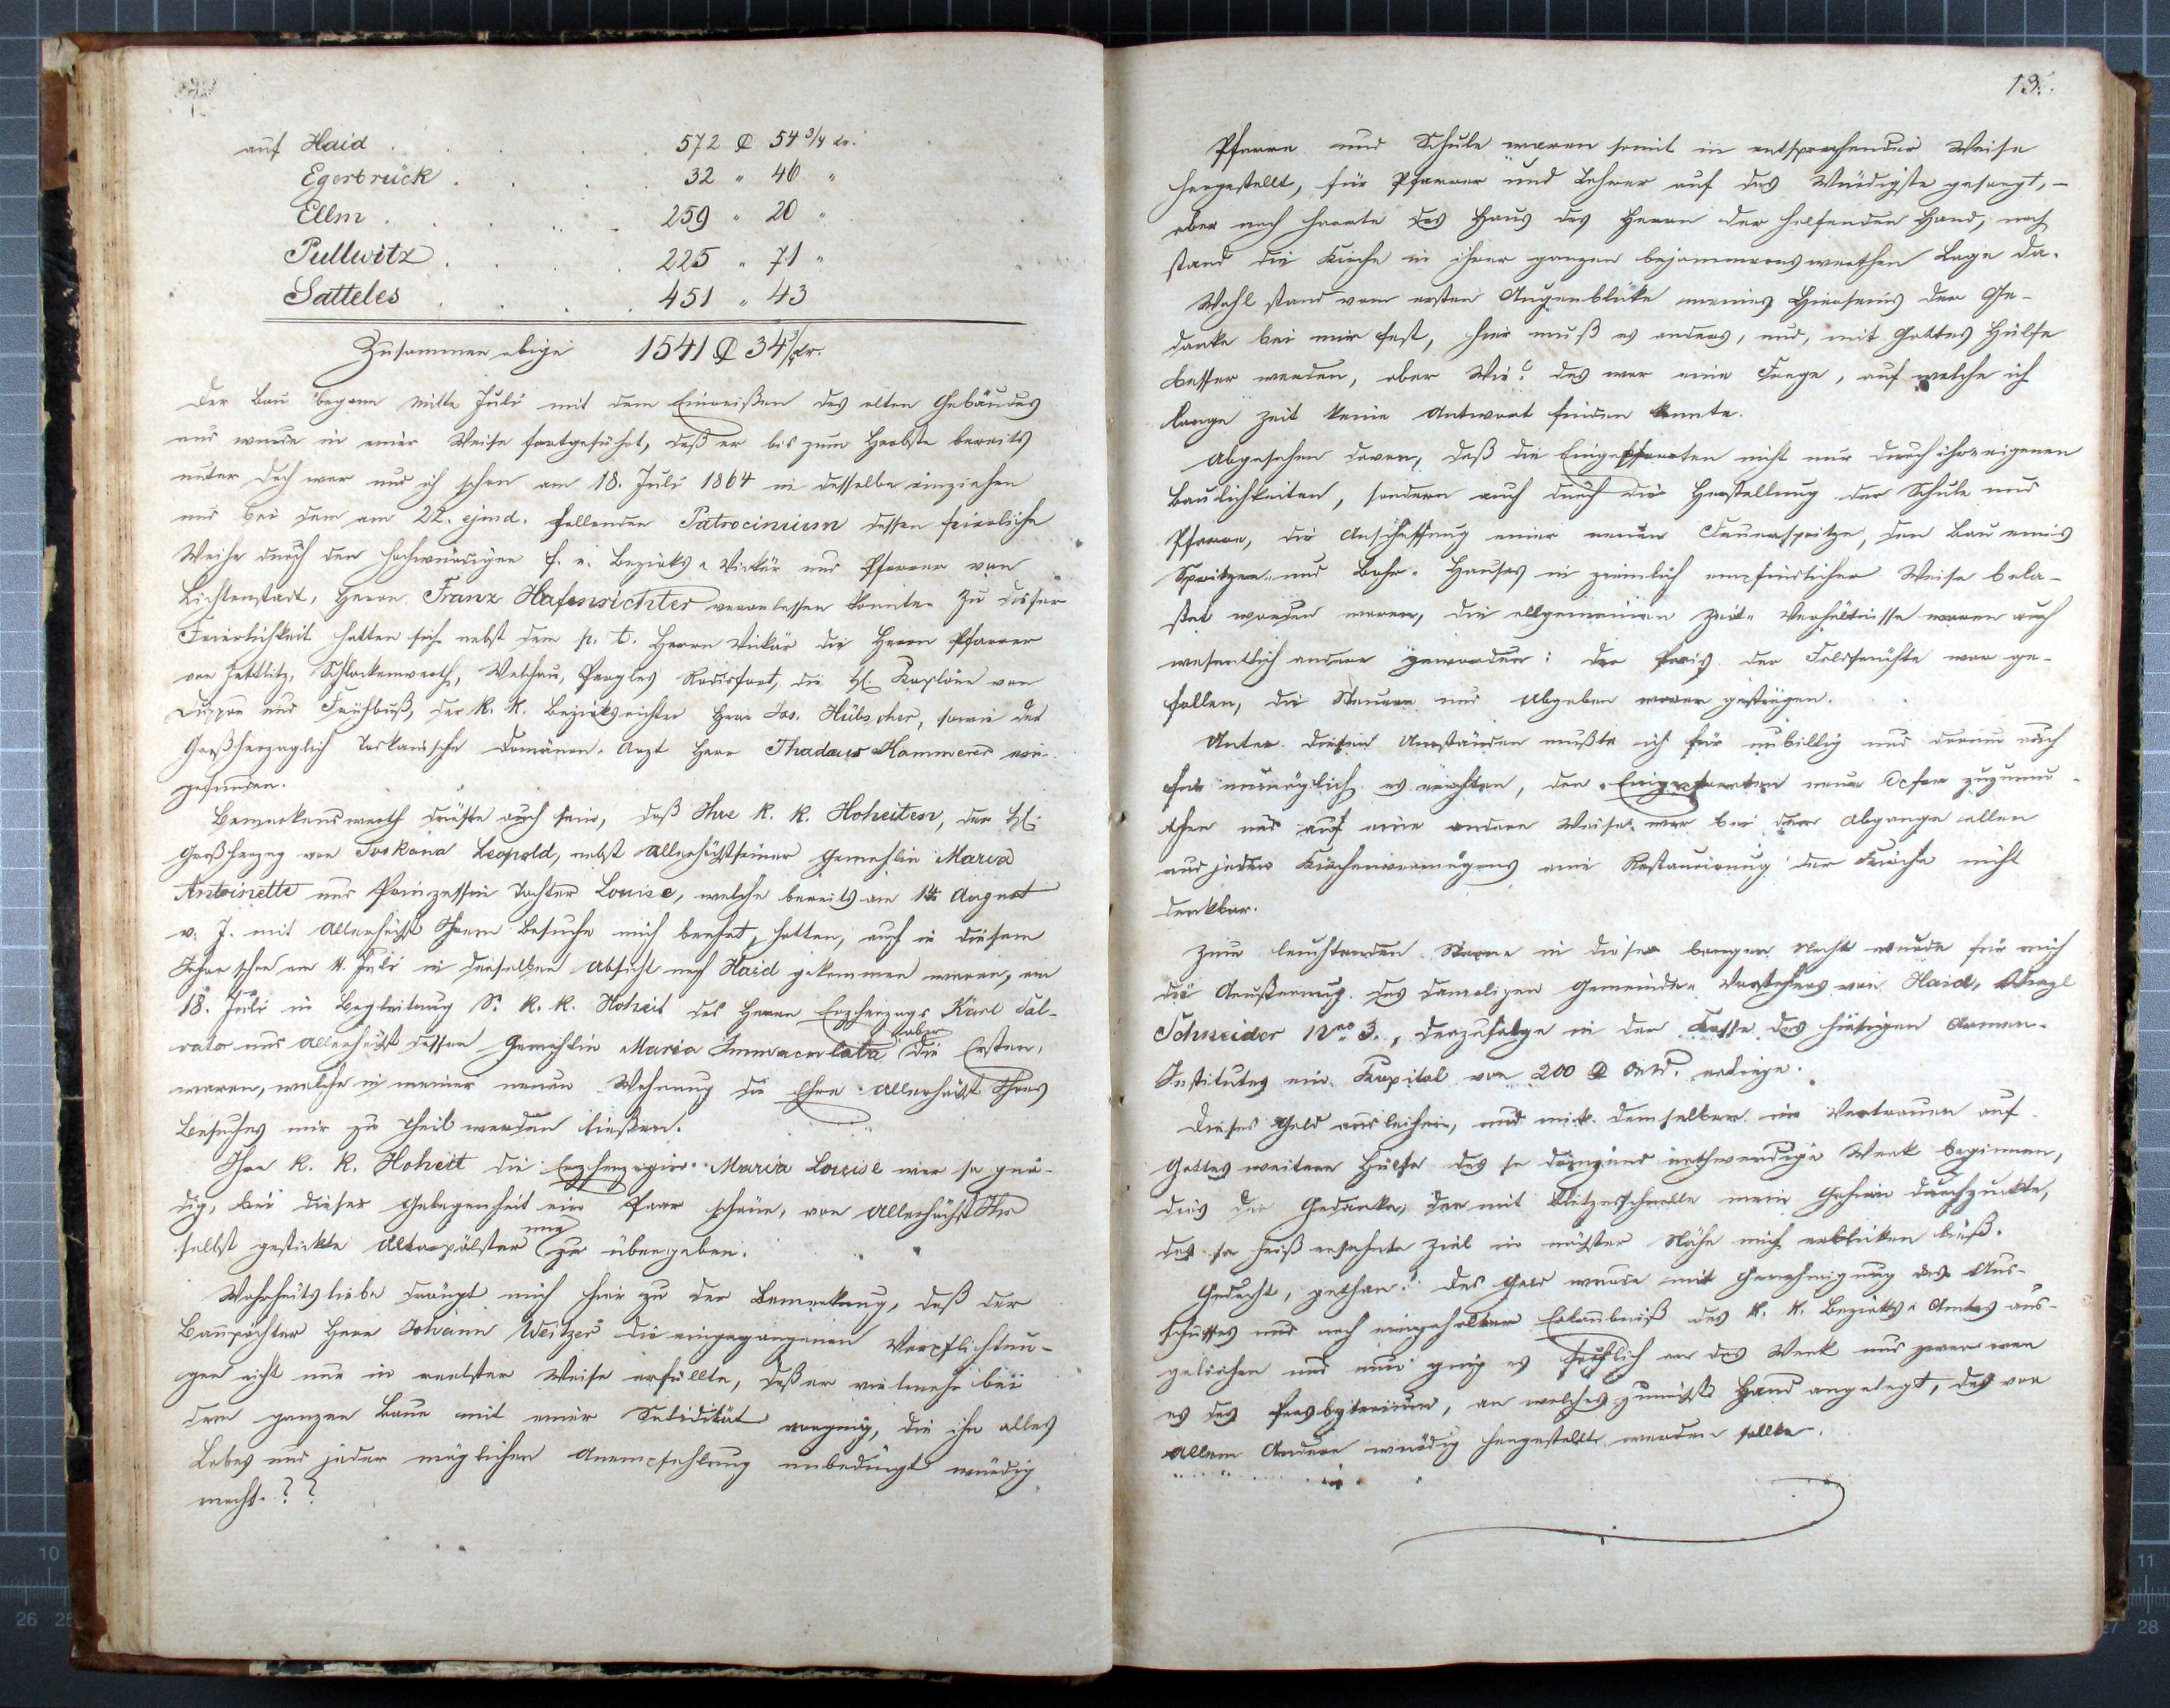 auf Haid . . . . 572 fl 54 3/4 kr.
Egerbrück . . . . 32 " 46 "
Ellm . . . . 259 " 20 "
Pullwitz . . . . 225 " 71 "
Satteles . . . . 451 " 43
Zusammen obige 1541 fl 34 3/4 kr.
Der Bau begann Mitte Juli mit dem Einreißen des alten Gebäudes
und wurde in einer Weise fortgeführt, daß er bis zum Herbste bereits
unter Dach war und ich schon am 18. Juli 1864 in dasselbe einziehen
und bei dem am 22. ejusd. fallenden Patrocinium dessen feierliche
Weihe durch den hochwürdigen f. e. Bezirks-Vikär und Pfarrer von
Lichtenstadt, Herrn Franz Hafenrichter veranlassen konnte. Zu dieser
Feierlichkeit hatten sich nebst dem p. t. Herrn Vikär die Herrn Pfarrer
von Zettlitz, Schlackenwerth, Welchau, Pergles Rodisfort, die H. Kapläne von
Duppau und Frühbuß, der k. k. Bezirksrichter Herr Jos. Hübscher, sowie der
Großherzoglich Toskanische Domänen-Arzt Herr Thadäus Hammerer ein-
gefunden.
Bemerkenswerth dürfte auch sein, daß Ihre k. k. Hoheiten, der H.
Großherzog von Toskana Leopold, nebst Allerhöchstseiner Gemahlin Maria
Antoinette und Prinzessin Tochter Louise, welche bereits am 14 August
v. J. mit Allerhöchst Ihrem Besuche mich beehrt hatten, auch in diesem
Jahre schon am 4. Juli in derselben Absicht nach Haid gekommen waren, am
18. Juli in Begleitung Sr k. k. Hoheit des Herrn Erzherzogs Karl Sal-
vator und Allerhöchst dessen Gemahlin Maria Immaculata aber die Ersten
waren, welche in meiner neuen Wohnung die Ehre Allerhöchst Ihres
Besuches mir zu Theil werden ließen.
Ihre k. k. Hoheit die Erzherzogin Maria Louise war so gnä-
dig, bei dieser Gelegenheit ein Paar schöne, von Allerhöchst Ihr
selbst gestickte Altarpölster mir zu übergeben.
Wahrheitsliebe drängt mich hier zu der Bemerkung, daß der
Baupächter Herr Johann Weitzer die eingegangenen Verpflichtun-
gen nicht nur in reelster Weise erfüllte, daß er vielmehr bei
dem ganzen Baue mit einer Solidität vorging, die ihn alles
Lobes und jeder möglichen Anempfehlung unbedingt würdig
macht. ??
13.
Pfarre und Schule waren somit in entsprechender Weise
hergestellt, für Pfarrer und Lehrer auf das Würdigste gesorgt, –
aber noch harrte das Haus des Herrn der helfenden Hand, noch
stand die Kirche in ihrer ganzen bejammernswerthen Lage da.
Wohl stand vom ersten Augenblicke meines Hierseins der Ge-
danke bei mir fest, hier muß es anders, und, mit Gottes Hülfe
besser werden, aber Wie? das war eine Frage, auf welche ich
lange Zeit keine Antwort finden konnte.
Abgesehen davon, daß die Eingepfarrten nicht nur durch ihre eigenen
Baulichkeiten, sondern auch durch die Herstellung der Schule und
Pfarre, die Anschaffung einer neuen Feuerspritze, den Bau eines
Spritzen- und Bahr-Hauses in ziemlich empfindlicher Weise bela-
stet worden waren, die allgemeinen Zeit-Verhältnisse waren auch
wesentlich andere geworden: der Preis der Feldfrüchte war ge-
fallen, die Steuern und Abgaben waren gestiegen.
Unter diesen Umständen mußte ich für unbillig und darum auch
für unmöglich es erachten, den Eingepfarrten neue Opfer zuzumu-
then und auf eine andere Weise war bei dem Abgange allen
und jeden Kirchenvermögens eine Restaurirung der Kirche nicht
denkbar.
Zum leuchtenden Sterne in dieser bangen Nacht wurde für mich
die Aeußerung des damaligen Gemeinde-Vorstehers von Haid, Wenzl
Schneider Nro 3., derzufolge in der Kasse des hiesigen Armen-
Institutes ein Kapital von 200 fl östr. erliege.
Dieses Geld ausleihen, und mit demselben im Vertrauen auf
Gottes weitere Hülfe das so dringend nothwendige Werk beginnen,
dies der Gedanke, der mit Blitzesschnelle mein Gehirn durchzuckte,
das so heiß ersehnte Ziel in nächster Nähe mich erblicken ließ.
Gedacht, gethan! Das Geld wurde mit Genehmigung des Aus-
schusses und nach eingeholter Erlaubniß des k. k. Bezirks-Amtes aus-
geliehen und nun ging es fröhlich an das Werk und zwar war
es das Presbyterium, an welches zunächst Hand angelegt, das vor
Allem Andern würdig hergestellt werden sollte.